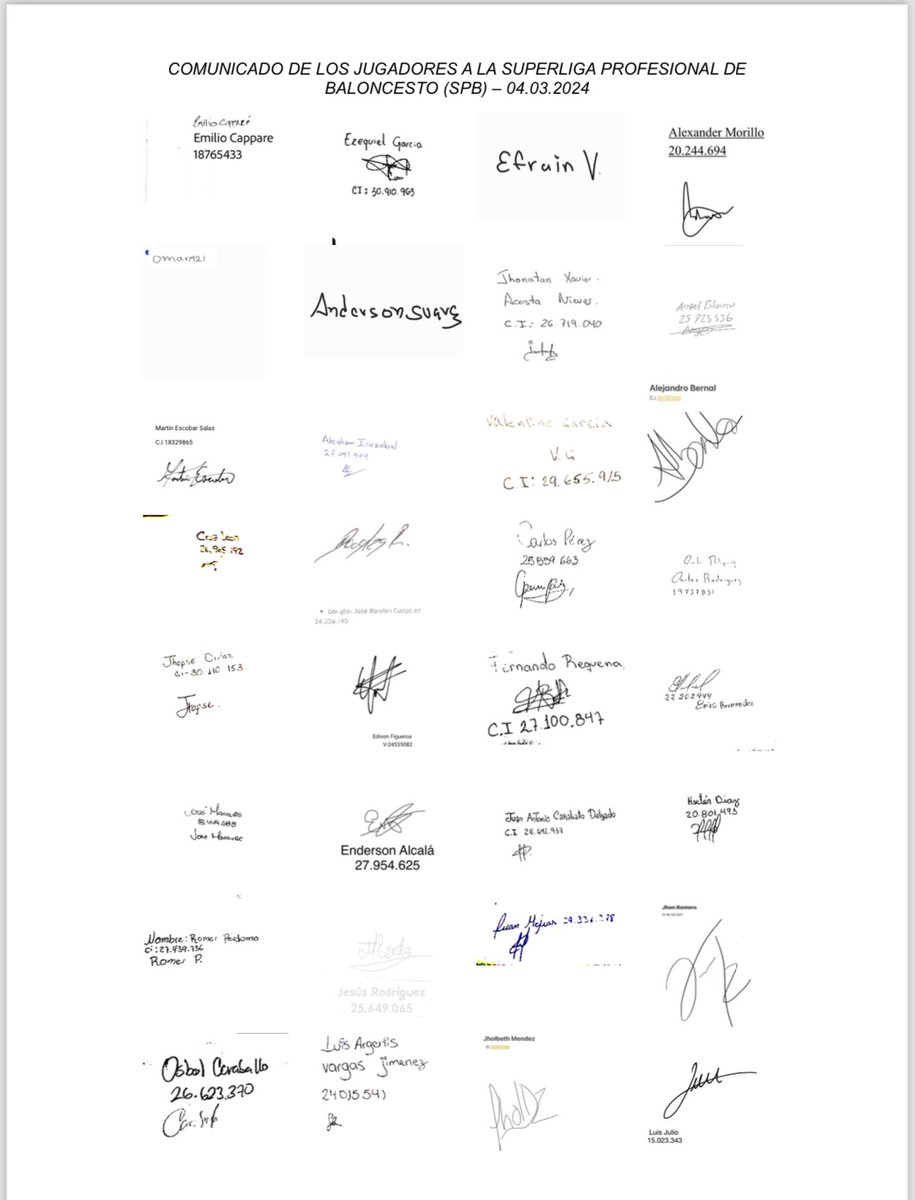 COMUNICADO DE LOS JUGADORES A LA SUPERLIGA PROFESIONAL DE
BALONCESTO (SPB) – 04.03.2024
Emilio Cappare
Emilio Cappare
18765433
Ezequiel Garcia
CI: 30.910.963
Efrain V.
Alexander Morillo
20.244.694
OmarM21
Anderson Suarez
Jhonatan Xavier
Acosta Nieves.
C.I: 26.719.040
Angel Blanco
25.725.536
Alejandro Bernal
C.I
Martin Escobar Salas
C.I 18329865
Martin Escobar
Abraham Irazabal
Valentine Garcia
V.G
C I: 29.655.915
Cruz Leon
Douglas R.
Douglas José Rondon
Carlos Pérez
25 559 663
Carlos Rodriguez
19737831
Jhopse
Jhopse.
Edison Figueroa
V-24535082
Fernando Requena.
C.I 27.100.847
22 202444
Eric Hernandez
José Marquez
Jose Marquez
Enderson Alcalá
27.954.625
Juan Antonio Caraballo Delgado
C.I 28.642.937
Nestór Diaz
20.801.493
Nombre: Romer Perdomo
Ci: 27.439.736
Romer P.
Jesús Rodríguez
25.649.065
Juan Mejias
Jhon Romero
Osbal Caraballo
26.623.370
Luis Argertis
vargas jimenez
24015541
Jholbeth Mendez
Luis Julio
15.023.343